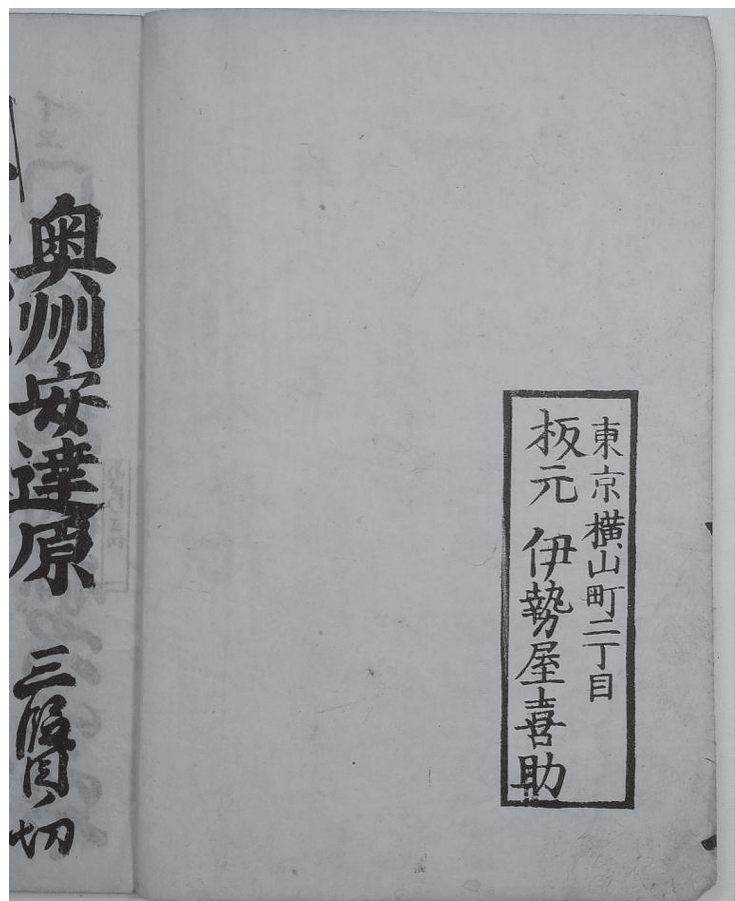 東京横山町二丁目
板元 伊勢屋喜助
奥州安達原 三段目ノ切